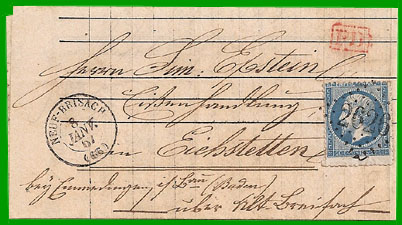 P.D.
Herrn Sim. Epstein
Eisenhandlung
NEUF-BRISACH
8
JANV.
67
(66)
2620
in Eichstetten
bei Emmendingen i/Bau (Baden)
über Alt-Breisach